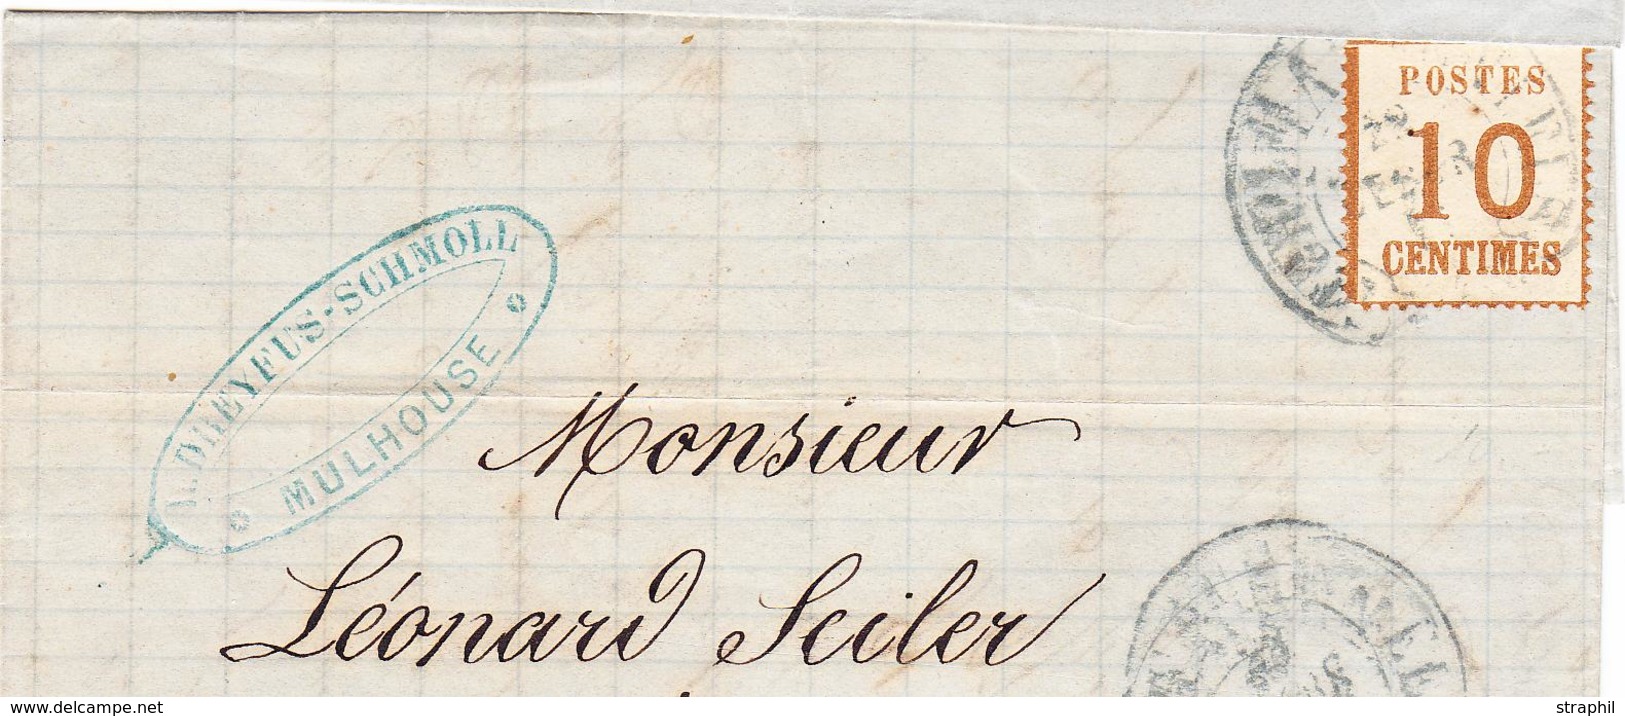 POSTES
10
CENTIMES
DREYFUS-SCHMOLL
MULHOUSE
Monsieur
Léonard Seiler
www.delcampe.net
straphil